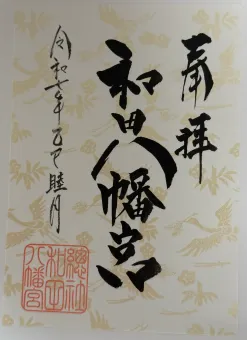 奉拝
和田八幡宮
令和七年乙巳睦月
總社
和田
八幡宮